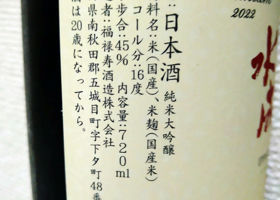 :日本酒 純米大吟醸
料名:米(国産)、米麹(国産米)
コール分:16度
歩合:45% 内容量:720ml
者:福禄寿酒造株式会社
県南秋田郡五城目町字下タ町48番
は20歳になってから。
2022